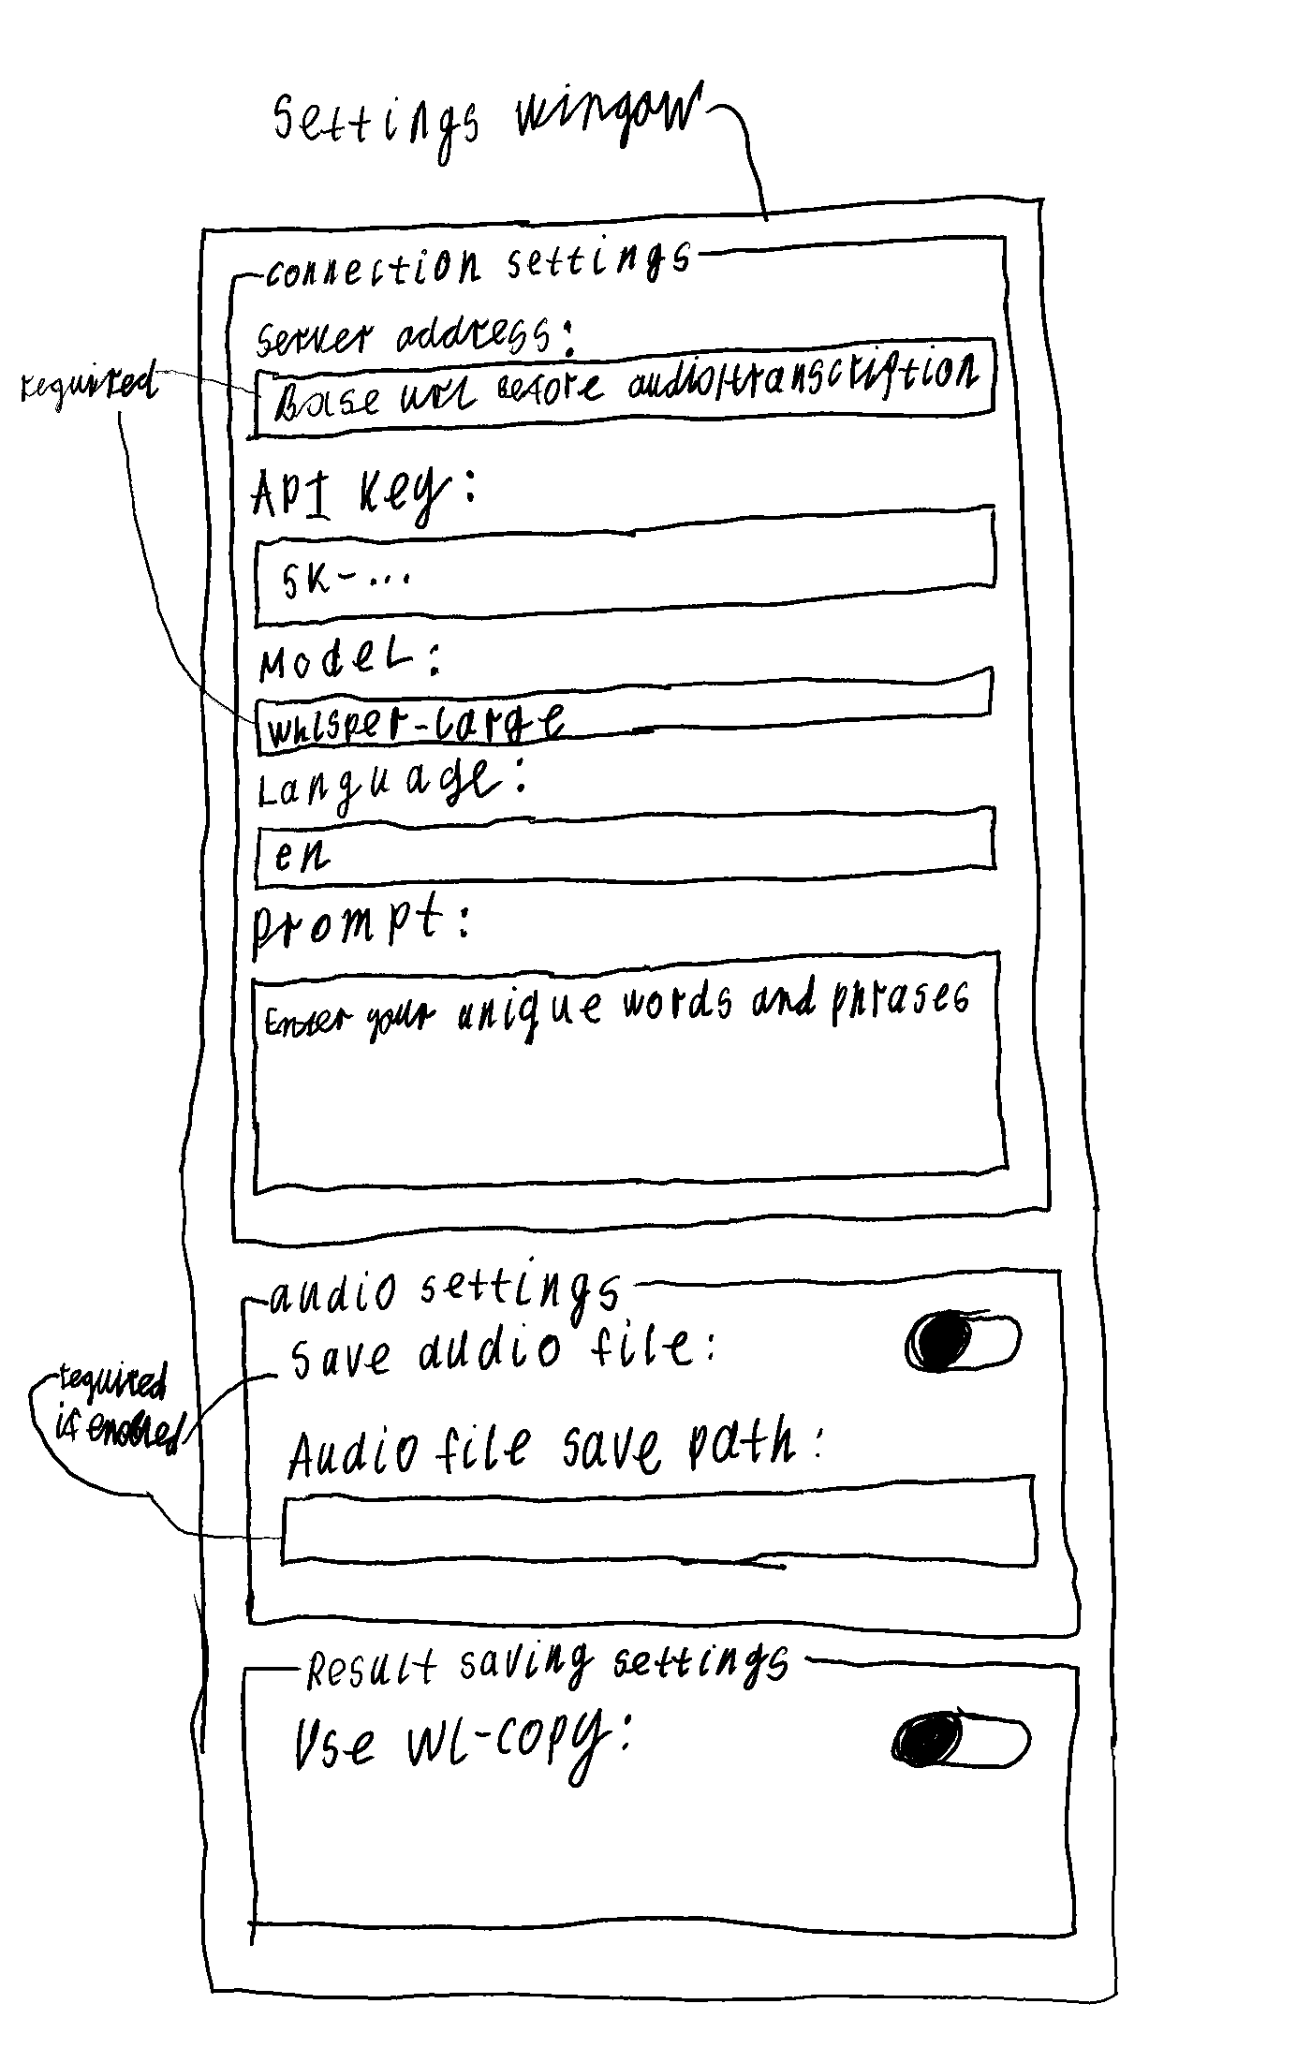 Settings wingow
connection settings
Server address:
required
Base url before audio/transcription
API key:
sk-...
Model:
whisper-large
Language:
en
prompt:
Enter your unique words and phrases
audio settings
Save audio file:
required
if enabled
Audio file save path:
Result saving settings
Use wl-copy: